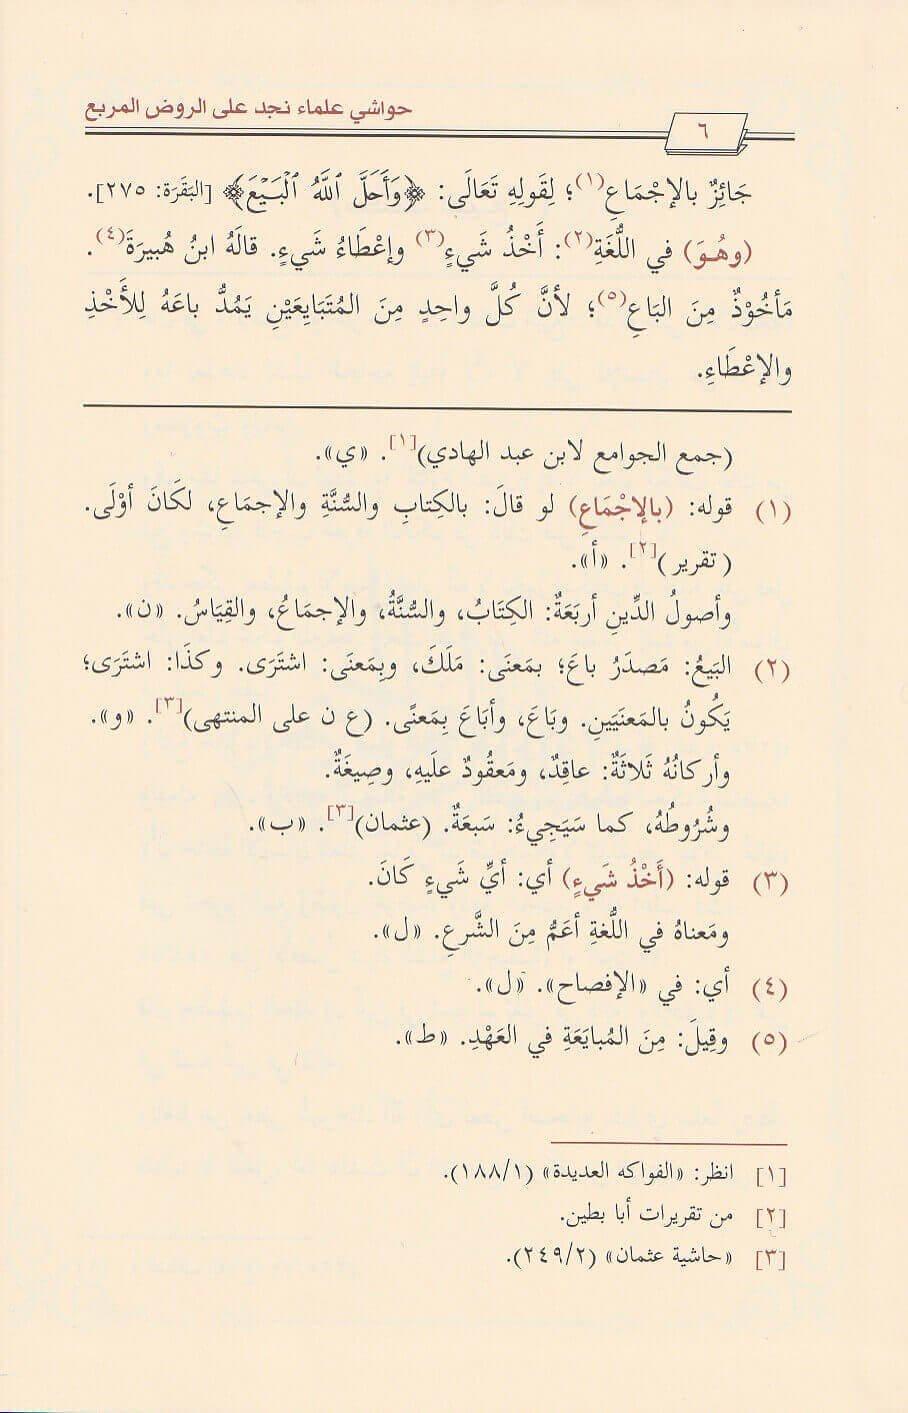 حواشي علماء نجد على الروض المربع
٦
جَائِزٌ بالإجْمَاعِ(١)؛ لِقَولِهِ تَعَالَى: ﴿وَأَحَلَّ ٱللَّهُ ٱلْبَيْعَ﴾ [البَقَرَة: ٢٧٥].
(وهُوَ) في اللُّغَةِ(٢): أَخْذُ شَيءٍ(٣) وإعْطَاءُ شَيءٍ. قالَهُ ابنُ هُبيرَةَ(٤).
مَأخُوْذٌ مِنَ البَاعِ(٥)؛ لأنَّ كُلَّ واحِدٍ مِنَ المُتَبَايِعَيْنِ يَمُدُّ باعَهُ لِلأَخْذِ
والإعْطَاءِ.
(جمع الجوامع لابن عبد الهادي)[١]. «ي».
(١) قوله: (بالإجْمَاعِ) لو قالَ: بالكِتابِ والسُّنَّةِ والإجمَاعِ، لكَانَ أوْلَى.
(تقرير)[٢]. «أ».
وأصولُ الدِّينِ أربَعَةٌ: الكِتَابُ، والسُّنَّةُ، والإجمَاعُ، والقِيَاسُ. «ن».
(٢) البَيعُ: مَصدَرُ باعَ؛ بمَعنَى: مَلَكَ، وبِمَعنَى: اشتَرَى. وكذَا: اشتَرَى؛
يَكُونُ بالمَعنَيَينِ. وبَاعَ، وأبَاعَ بِمَعنًى. (ع ن على المنتهى)[٣]. «و».
وأركانُهُ ثَلاثَةٌ: عاقِدٌ، ومَعقُودٌ علَيهِ، وصِيغَةٌ.
وشُرُوطُهُ، كما سَيَجِيءُ: سَبعَةٌ. (عثمان)[٣]. «ب».
(٣) قوله: (أَخْذُ شَيءٍ) أي: أيِّ شَيءٍ كَانَ.
ومَعناهُ في اللُّغةِ أعَمُّ مِنَ الشَّرعِ. «ل».
(٤) أي: في «الإفصاح». «ل».
(٥) وقِيلَ: مِنَ المُبايَعَةِ في العَهْدِ. «ط».
[١] انظر: «الفواكه العديدة» (١٨٨/١).
[٢] من تقريرات أبا بطين.
[٣] «حاشية عثمان» (٢٤٩/٢).